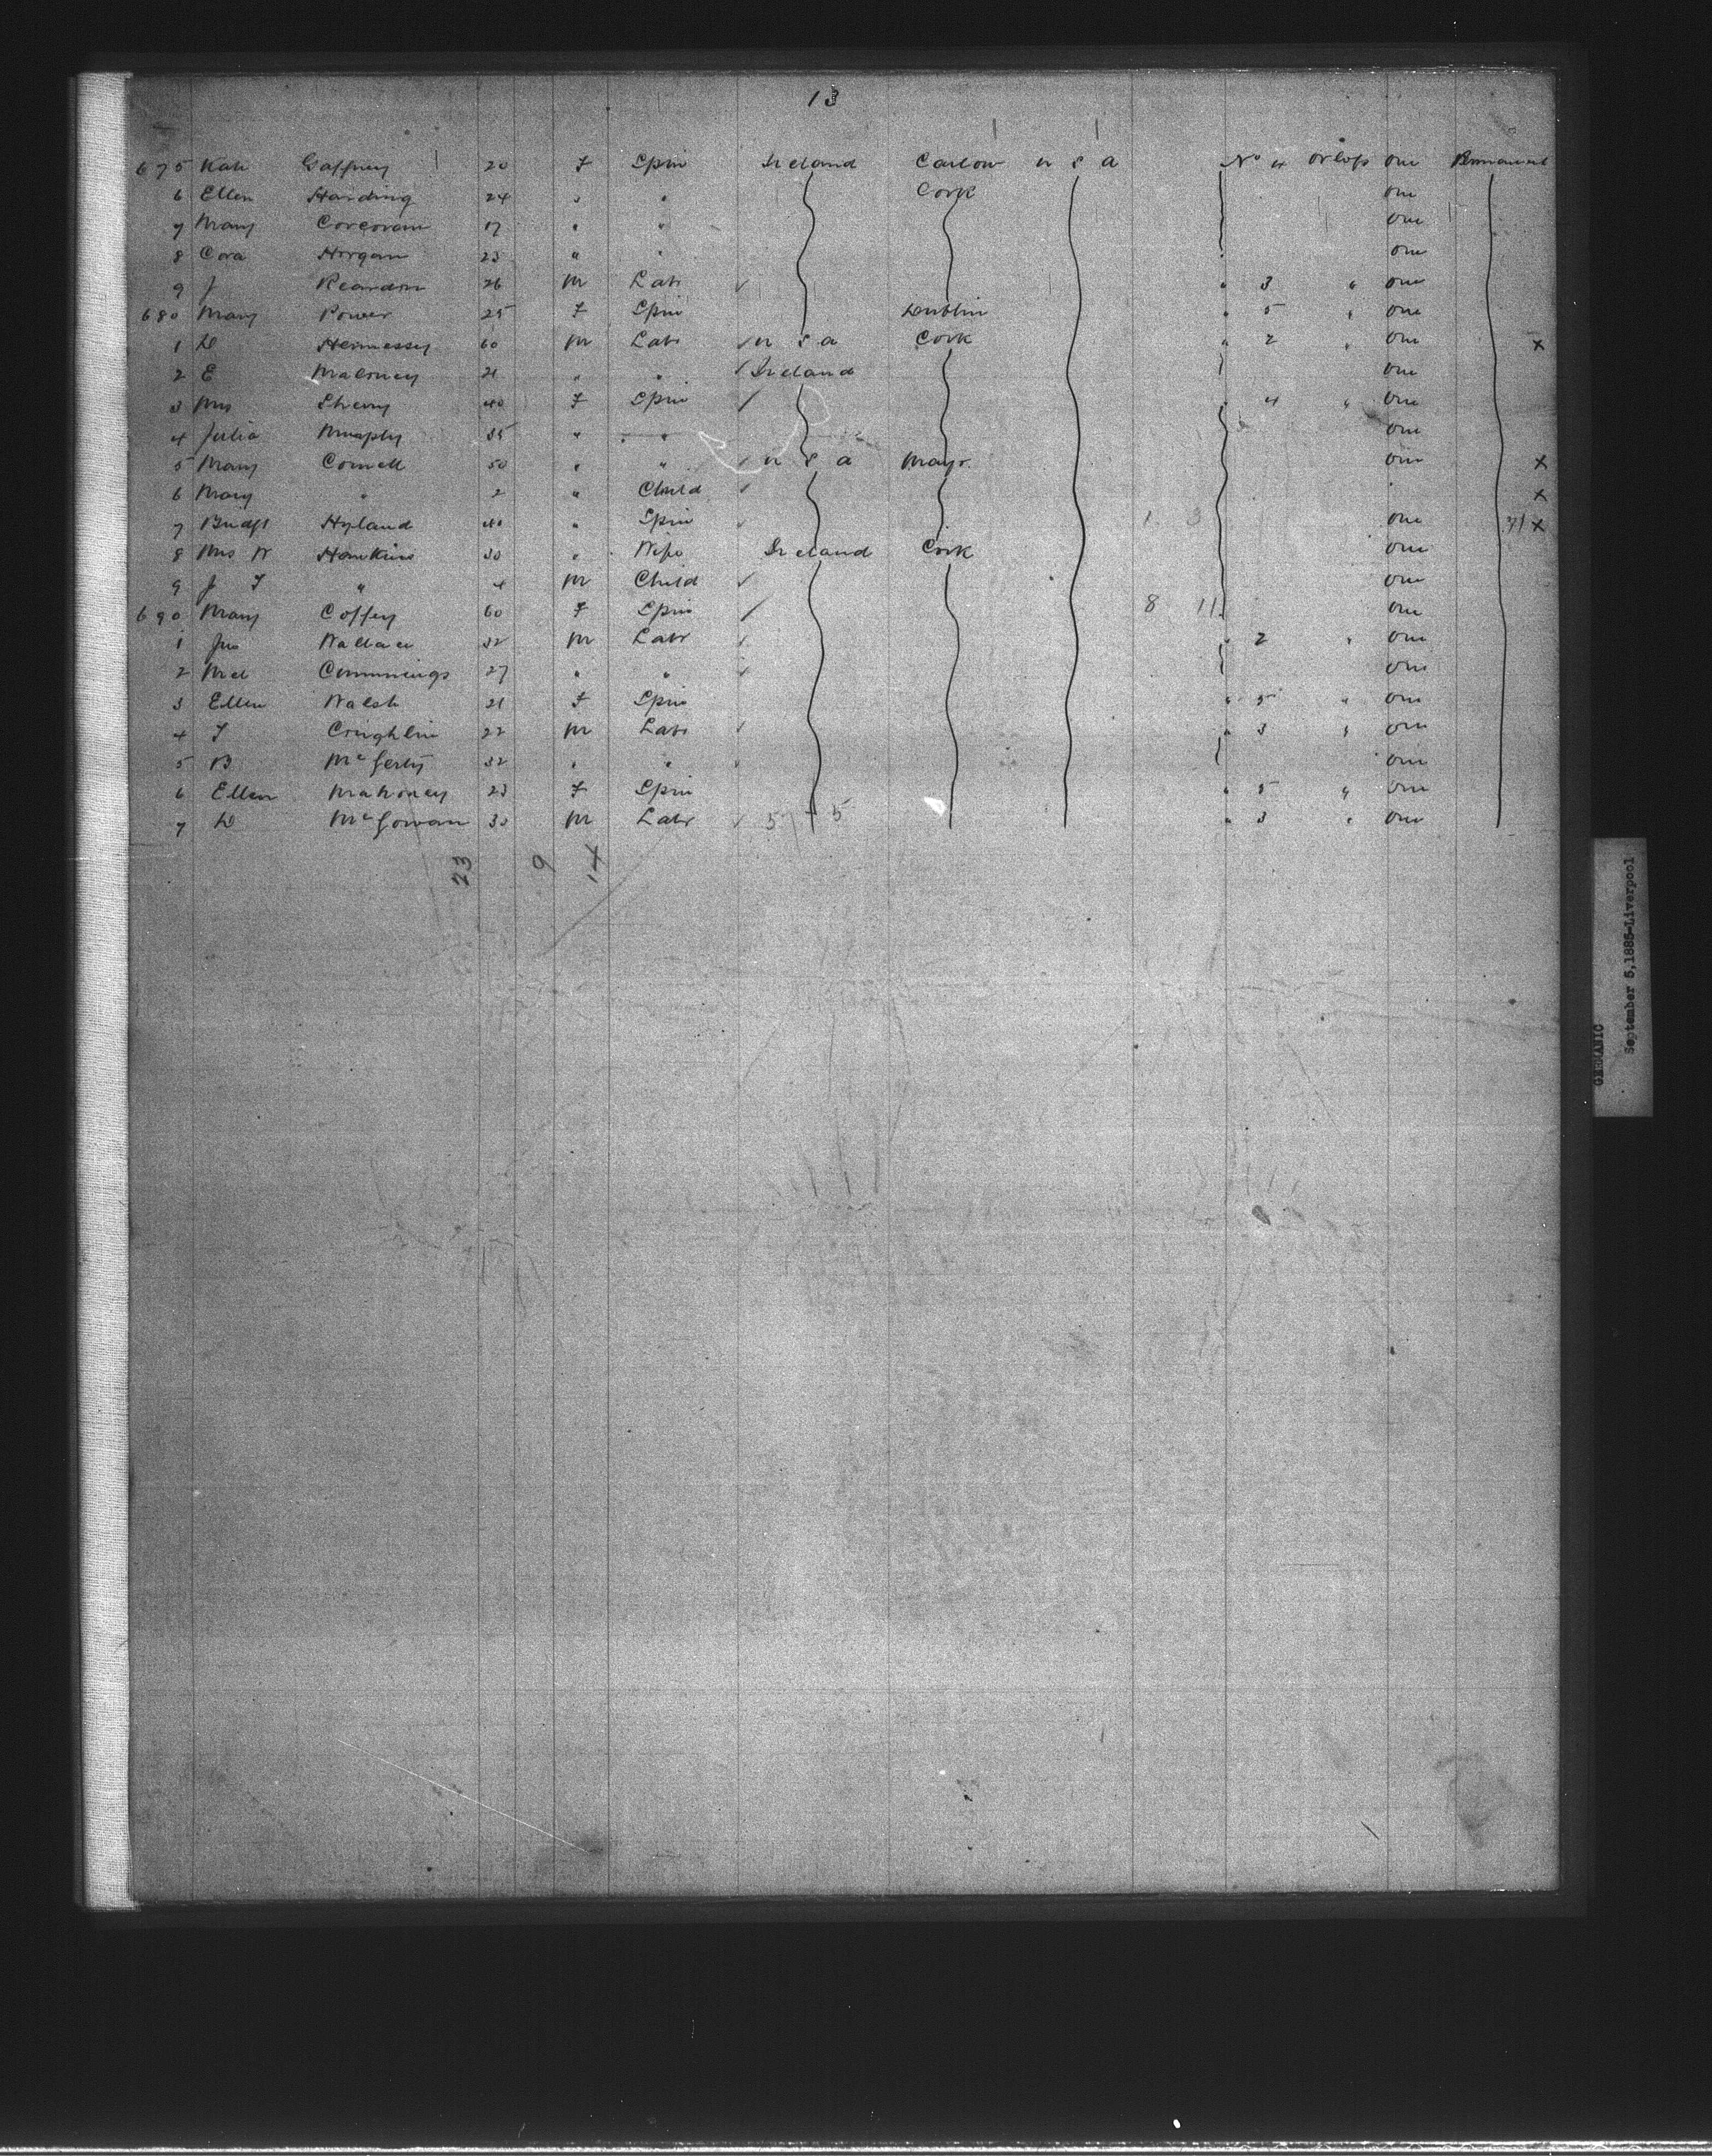 13
675 Kate Gaffney 20 F Spin Ireland Carlow U S A No 4 Orlops one Permanent
6 Ellen Harding 24 " " Cork one
7 Mary Corcoran 17 " " one
8 Cora Horgan 23 " " one
9 J Reardon 26 M Labr ✓ " 3 " one
680 Mary Power 25 F Spin Dublin " 5 " one
1 D Hennessy 60 M Labr ✓ U S A Cork " 2 " one x
2 E Maloney 21 " " ✓ Ireland one
3 Mrs Sherry 40 F Spin ✓ " 4 " one
4 Julia Murphy 35 " " one
5 Mary Cornell 50 " " ✓ U S A Mayo one x
6 Mary " 2 " Child ✓ " x
7 Bridgt Hyland 40 " Spin ✓ 1 3 one 71 x
8 Mrs W Hawkins 30 " Wife Ireland Cork one
9 J F " 4 M Child ✓ one
690 Mary Coffey 60 F Spin ✓ 8 11 one
1 Jno Wallace 32 M Labr ✓ " 2 " one
2 Mcl Cummings 27 " " ✓ one
3 Ellen Walsh 21 F Spin " 5 " one
4 T Coughlin 22 M Labr ✓ " 3 " one
5 B 32 " " ✓ one
6 Ellen Mahoney 23 F Spin " 5 " one
7 D McGowan 30 M Labr ✓ 5 + 5 " 3 " one
23 9 14
GERMANIC
September 5, 1885-Liverpool